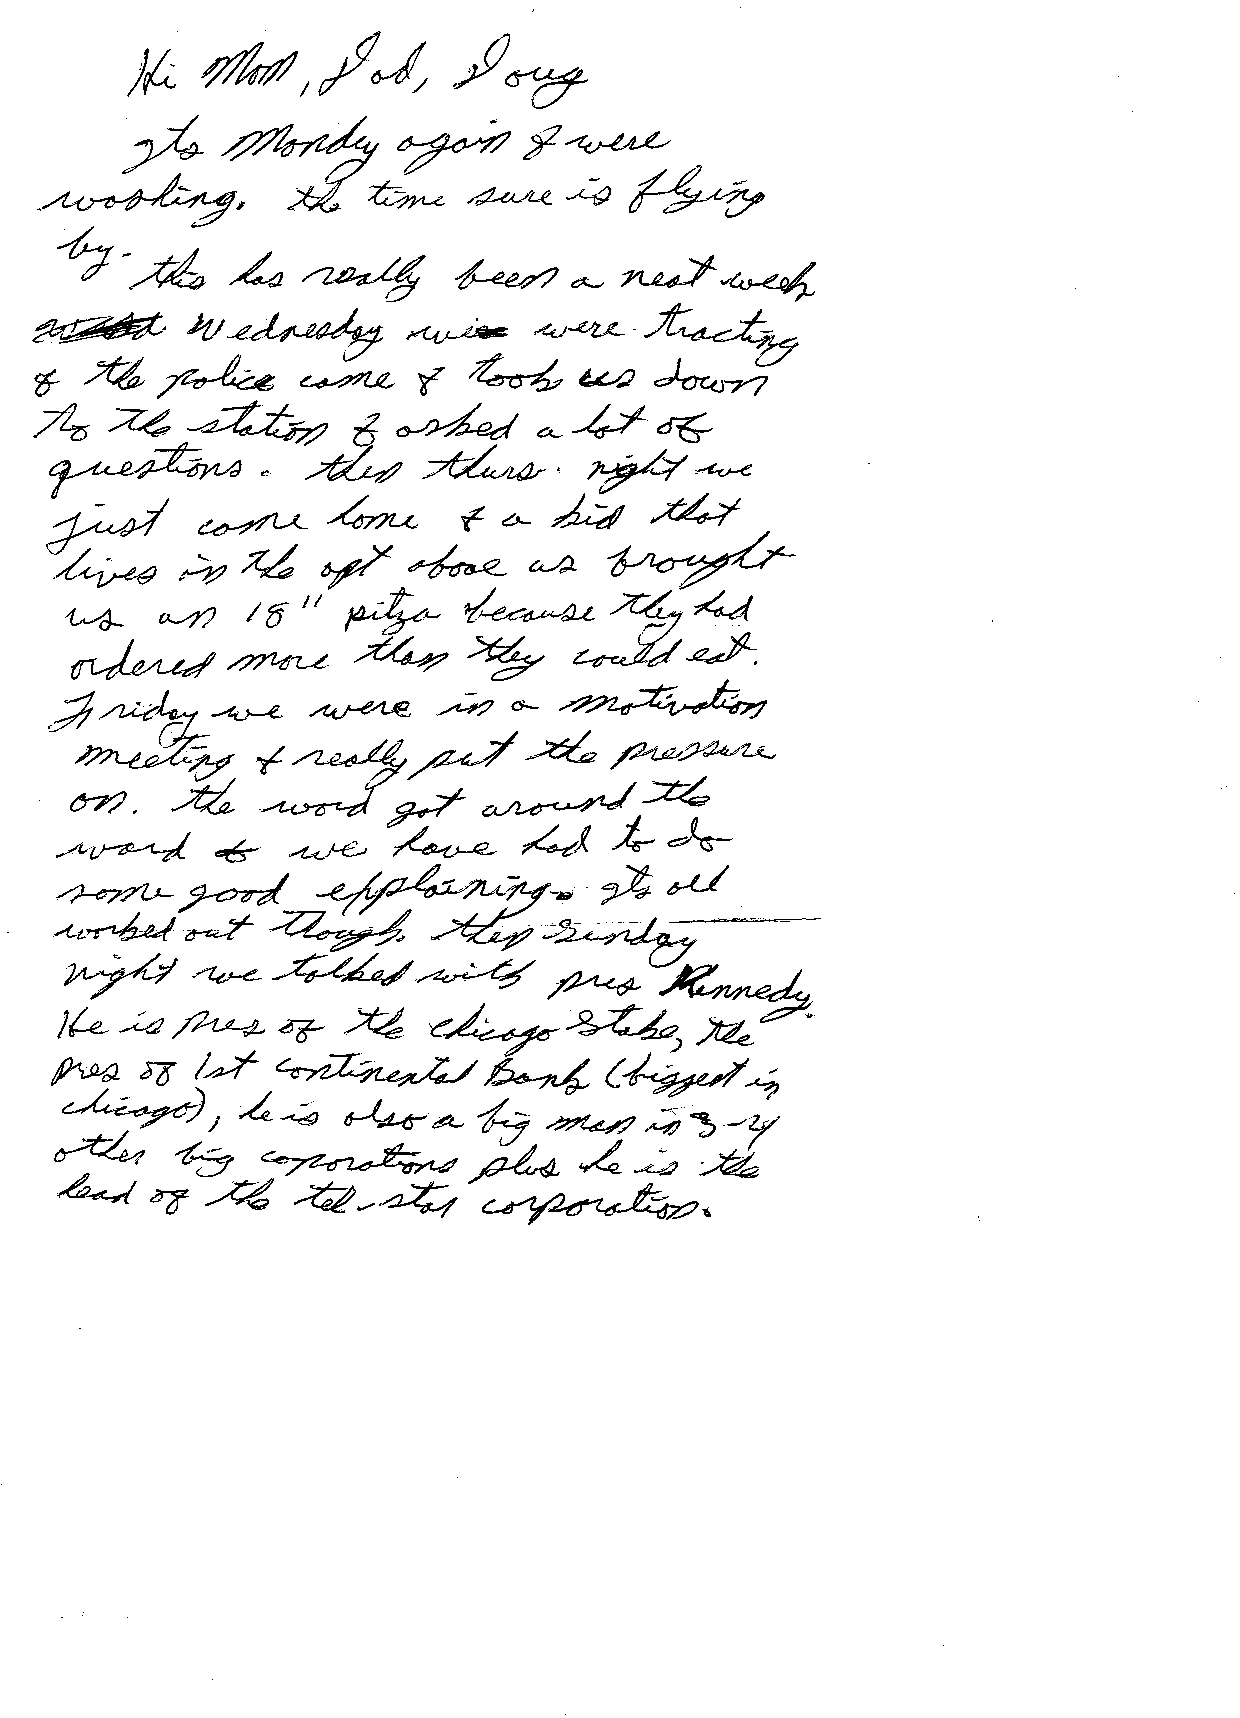 Hi Mom, Dad, Doug
Its Monday again & were
washing. the time sure is flying
by.
this has really been a neat week
Wednesday we were tracting
& the police came & took us down
to the station & asked a lot of
questions. then thurs. night we
just came home & a kid that
lives in the apt above us brought
us an 18" pitza because they had
ordered more than they could eat.
Friday we were in a motivation
meeting & really put the pressure
on. the word got around the
ward & we have had to do
some good explaining. Its all
worked out though. then Sunday
night we talked with pres Kennedy.
He is pres of the chicago Stake, the
pres of 1st continental Bank (biggest in
chicago), he is also a big man in 3-4
other big corporations plus he is the
head of the tel-star corporation.